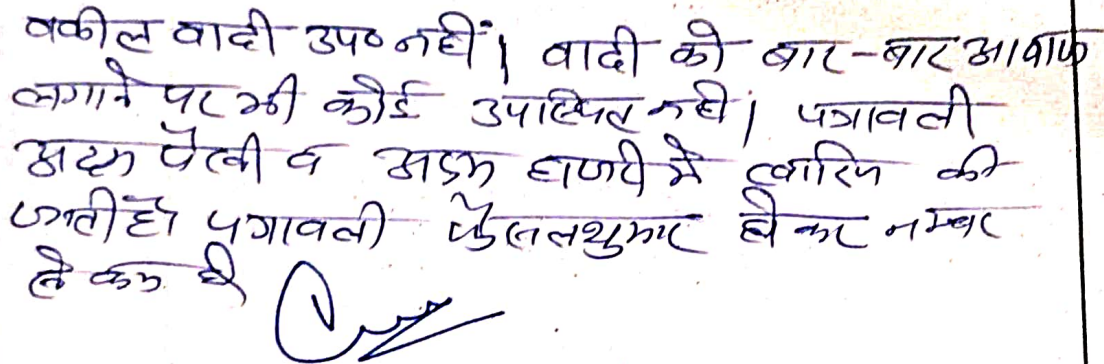 वकील वादी उप० नहीं। वादी को बार-बार आवाज
लगाने पर भी कोई उपस्थित नही। पत्रावली
अदम पैरवी व अदम हाजरी में खारिज की
जाती है। पत्रावली फैसलशुमार होकर नम्बर
से कम हो